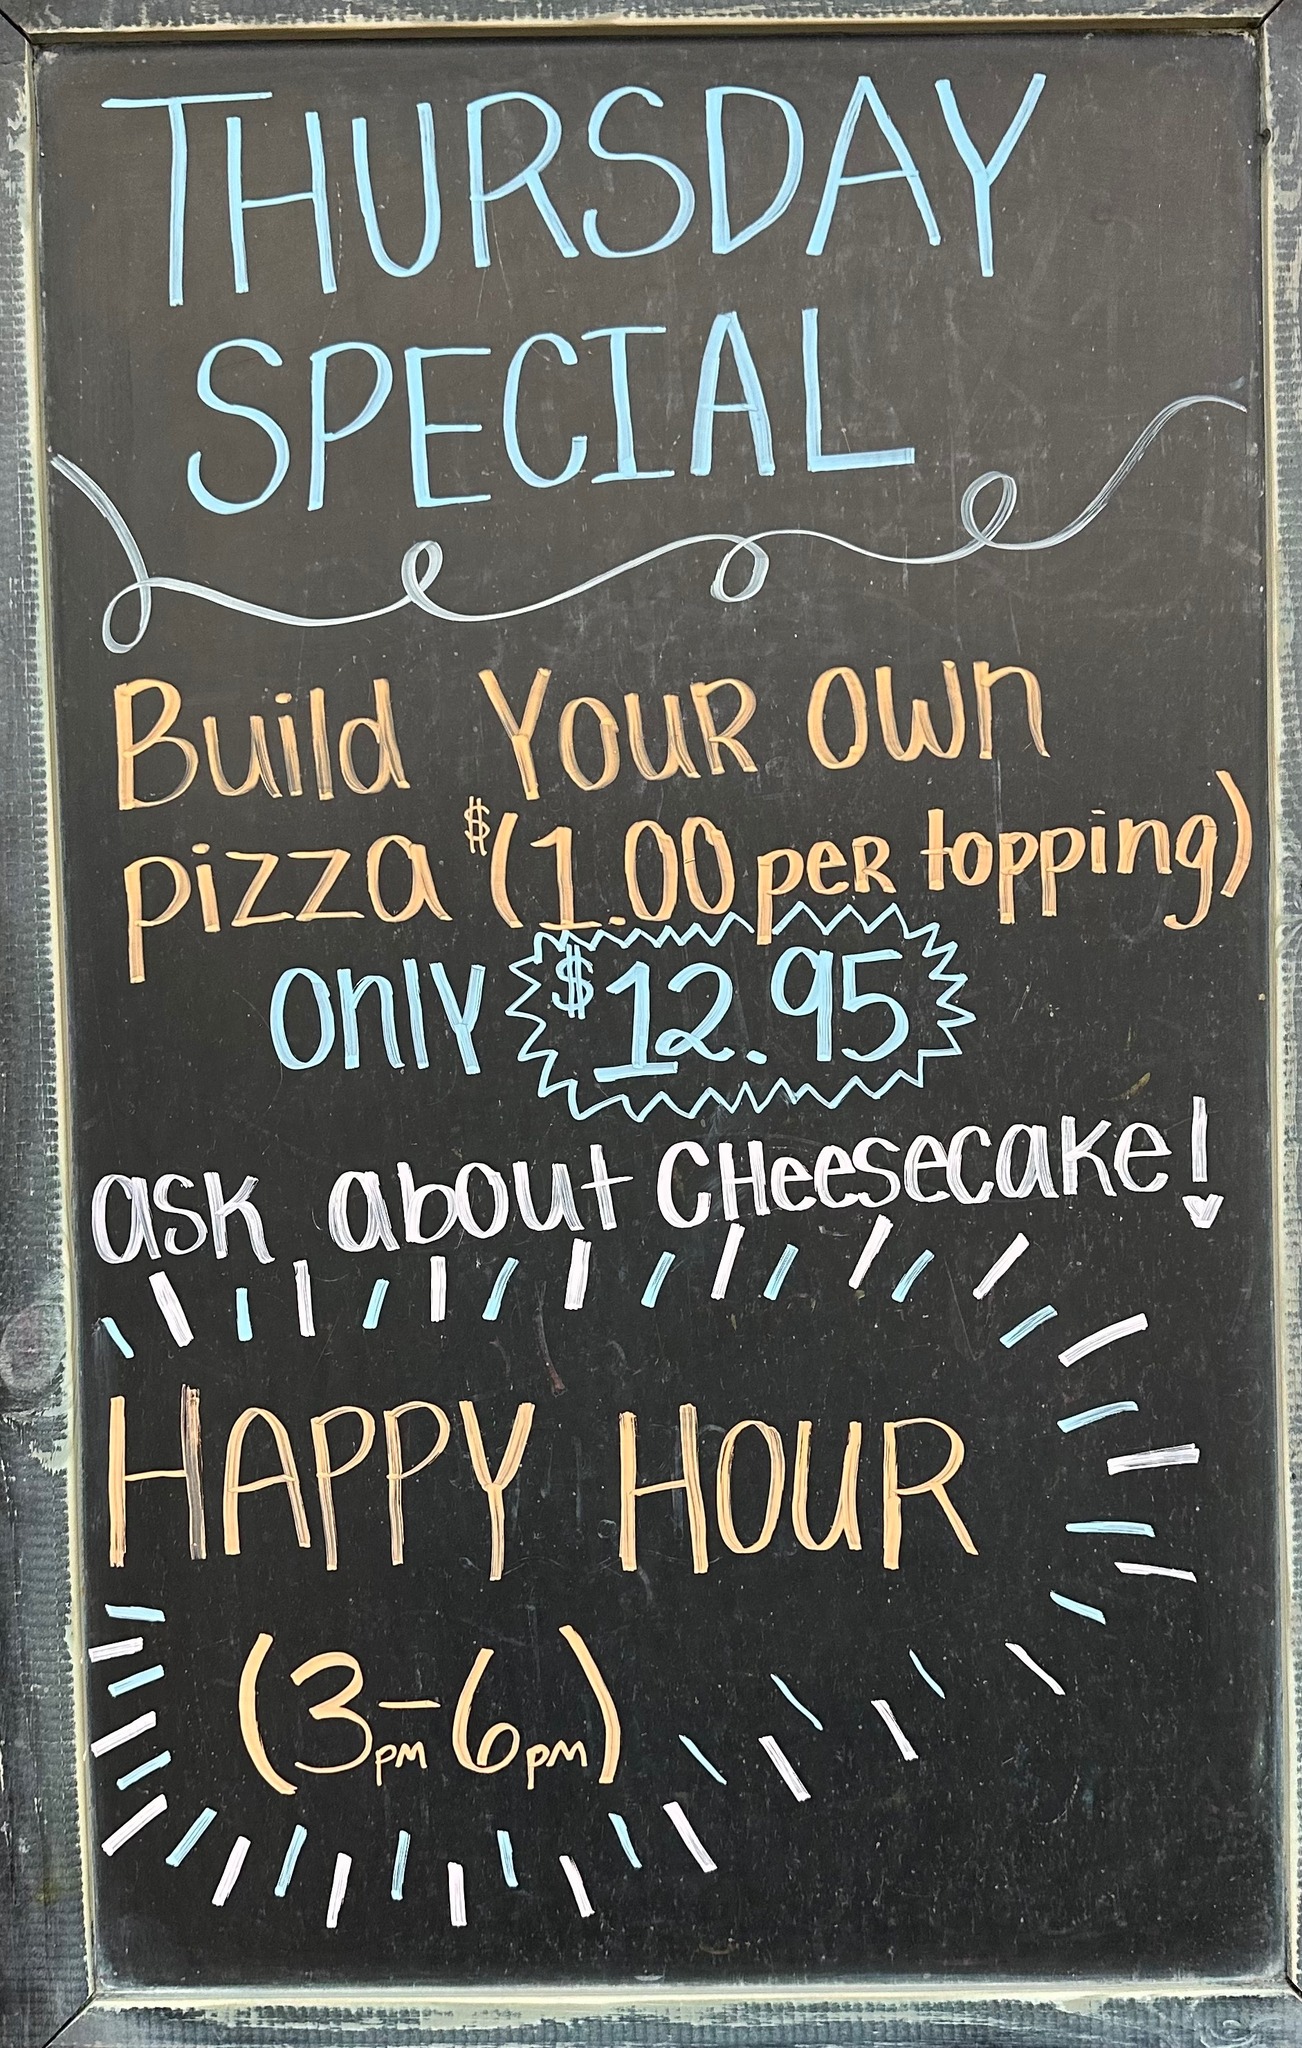 THURSDAY
SPECIAL
Build YouR own
pizza $(1.00 peR topping)
only $12.95
ask about CHeesecake!
HAPPY HOUR
(3pm-6pm)